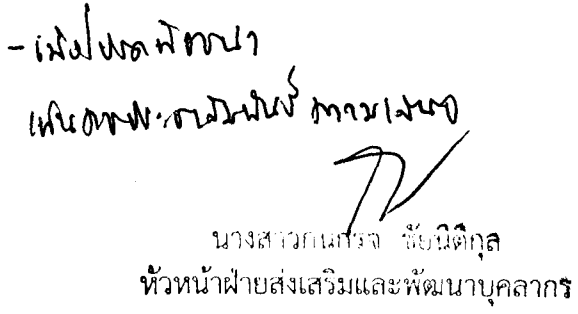 - เพื่อโปรดพิจารณา
เห็นควรประชาสัมพันธ์ ตามเสนอ
นางสาวกนกรจ ชัยนิติกุล
หัวหน้าฝ่ายส่งเสริมและพัฒนาบุคลากร